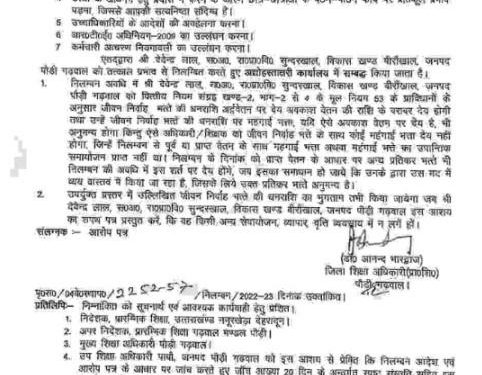 पड़ना, जिससे आपकी सत्यनिष्ठा संदिग्ध है।
5 उच्चाधिकारियों के आदेशों की अवहेलना करना।
6 आर०टी०ई० अधिनियम-2009 का उल्लंघन करना।
7 कर्मचारी आचरण नियमावली का उल्लंघन करना।
एतद्द्वारा श्री देवेन्द्र लाल, स०अ०, रा०प्रा०वि० सुन्दरखाल, विकास खण्ड बीरोंखाल, जनपद
पौड़ी गढ़वाल को तत्काल प्रभाव से निलम्बित करते हुए अधोहस्ताक्षरी कार्यालय में सम्बद्ध किया जाता है।
1. निलम्बन अवधि में श्री देवेन्द्र लाल, स०अ०, रा०प्रा०वि० सुन्दरखाल, विकास खण्ड बीरोंखाल, जनपद
पौड़ी गढ़वाल को वित्तीय नियम संग्रह खण्ड-2, भाग-2 से 4 के मूल नियम 53 के प्राविधानों के
अनुसार जीवन निर्वाह भत्ते की धनराशि अर्द्धवेतन पर देय अवकाश वेतन की राशि के बराबर देय होगी
तथा उन्हें जीवन निर्वाह भत्ते की धनराशि पर महंगाई भत्ता, यदि ऐसे अवकाश वेतन पर देय है, भी
अनुमन्य होगा किन्तु ऐसे अधिकारी/शिक्षक को जीवन निर्वाह भत्ते के साथ कोई महंगाई भत्ता देय नहीं
होगा, जिन्हें निलम्बन से पूर्व या प्राप्त वेतन के साथ महंगाई भत्ता अथवा महंगाई भत्ते का उपान्तिक
समायोजन प्राप्त नहीं था। निलम्बन के दिनांक को प्राप्त वेतन के आधार पर अन्य प्रतिकर भत्ते भी
निलम्बन की अवधि में इस शर्त पर देय होंगे, जब इसका समाधान हो जाये कि उनके द्वारा उस मद में
व्यय वास्तव में किया जा रहा है, जिसके लिये उक्त प्रतिकर भत्ते अनुमन्य है।
2. उपर्युक्त प्रस्तर में उल्लिखित जीवन निर्वाह भत्ते की धनराशि का भुगतान तभी किया जायेगा जब श्री
देवेन्द्र लाल, स०अ०, रा०प्रा०वि० सुन्दरखाल, विकास खण्ड बीरोंखाल, जनपद पौड़ी गढ़वाल इस आशय
का सपथ पत्र प्रस्तुत करें, कि वह किसी अन्य सेवायोजन, व्यापार, वृत्ति व्यवसाय में न लगे हों।
संलग्नक :- आरोप पत्र
(डा० आनन्द भारद्वाज)
जिला शिक्षा अधिकारी(प्रा०शि०)
पौड़ी गढ़वाल।
2252-57 /निलम्बन/2022-23 दिनांक उक्तांकित।
प्रतिलिपि:- निम्नांकित को सूचनार्थ एवं आवश्यक कार्यवाही हेतु प्रेषित।
1. निदेशक, प्रारम्भिक शिक्षा, उत्तराखण्ड ननूरखेड़ा देहरादून।
2. अपर निदेशक, प्रारम्भिक शिक्षा गढ़वाल मण्डल पौड़ी।
3. मुख्य शिक्षा अधिकारी पौड़ी गढ़वाल।
4. उप शिक्षा अधिकारी पाबौ, जनपद पौड़ी गढ़वाल को इस आशय से प्रेषित कि निलम्बन आदेश एवं
आरोप पत्र के आधार पर जांच करते हुए जाँच आख्या 20 दिन के अन्तर्गत स्पष्ट संस्तुति सहित इस